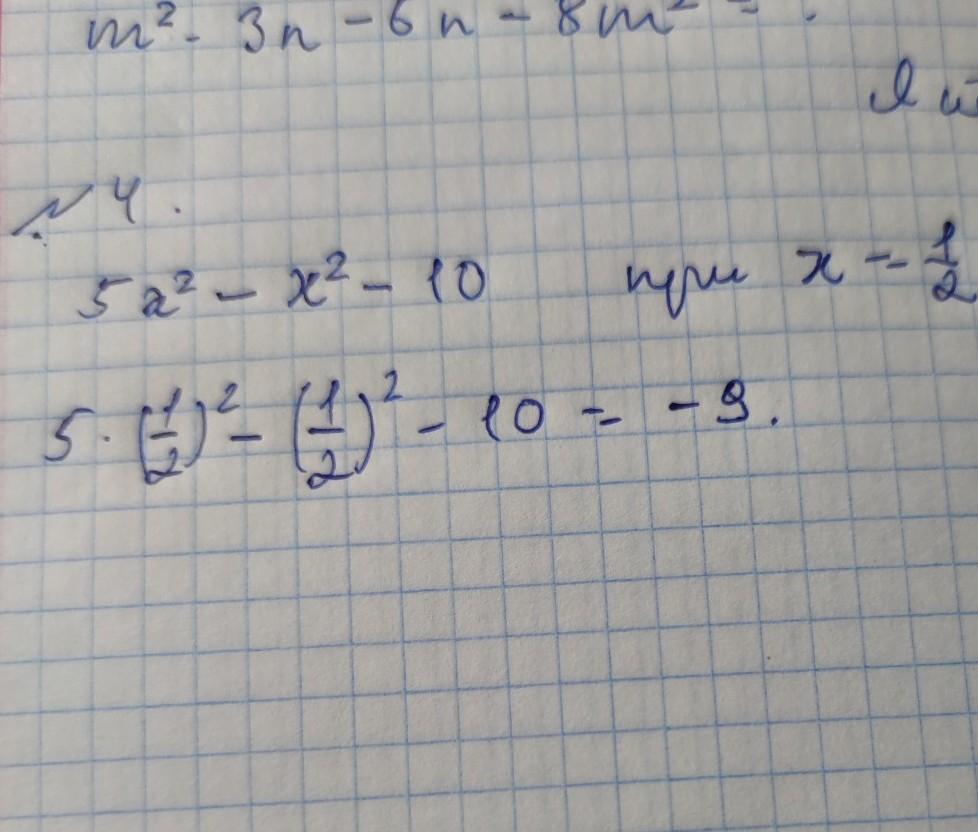 m² - 3n - 6n - 8m² =
№ 4.
5x² - x² - 10 при x = 1/2
5 · (1/2)² - (1/2)² - 10 = -9.